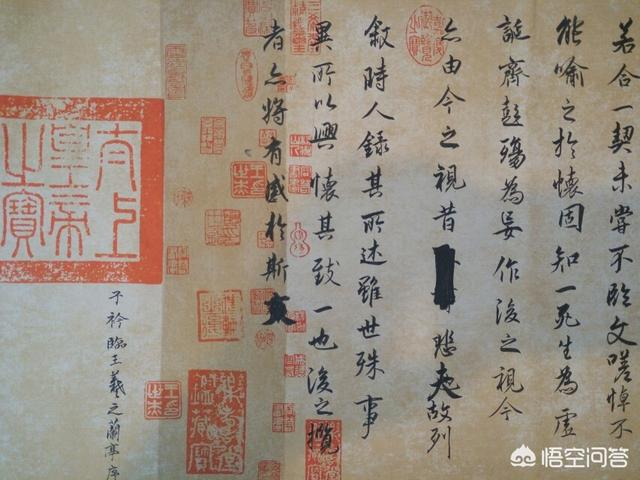 若合一契未嘗不臨文嗟悼不
能喻之於懷固知一死生為虛
誕齊彭殤為妄作後之視今
亦由今之視昔悲夫故列
敘時人錄其所述雖世殊事
異所以興懷其致一也後之攬
者亦將有感於斯文
太上皇帝之寶
子衿臨王羲之蘭亭序
樂壽堂鑑藏寶
悟空问答